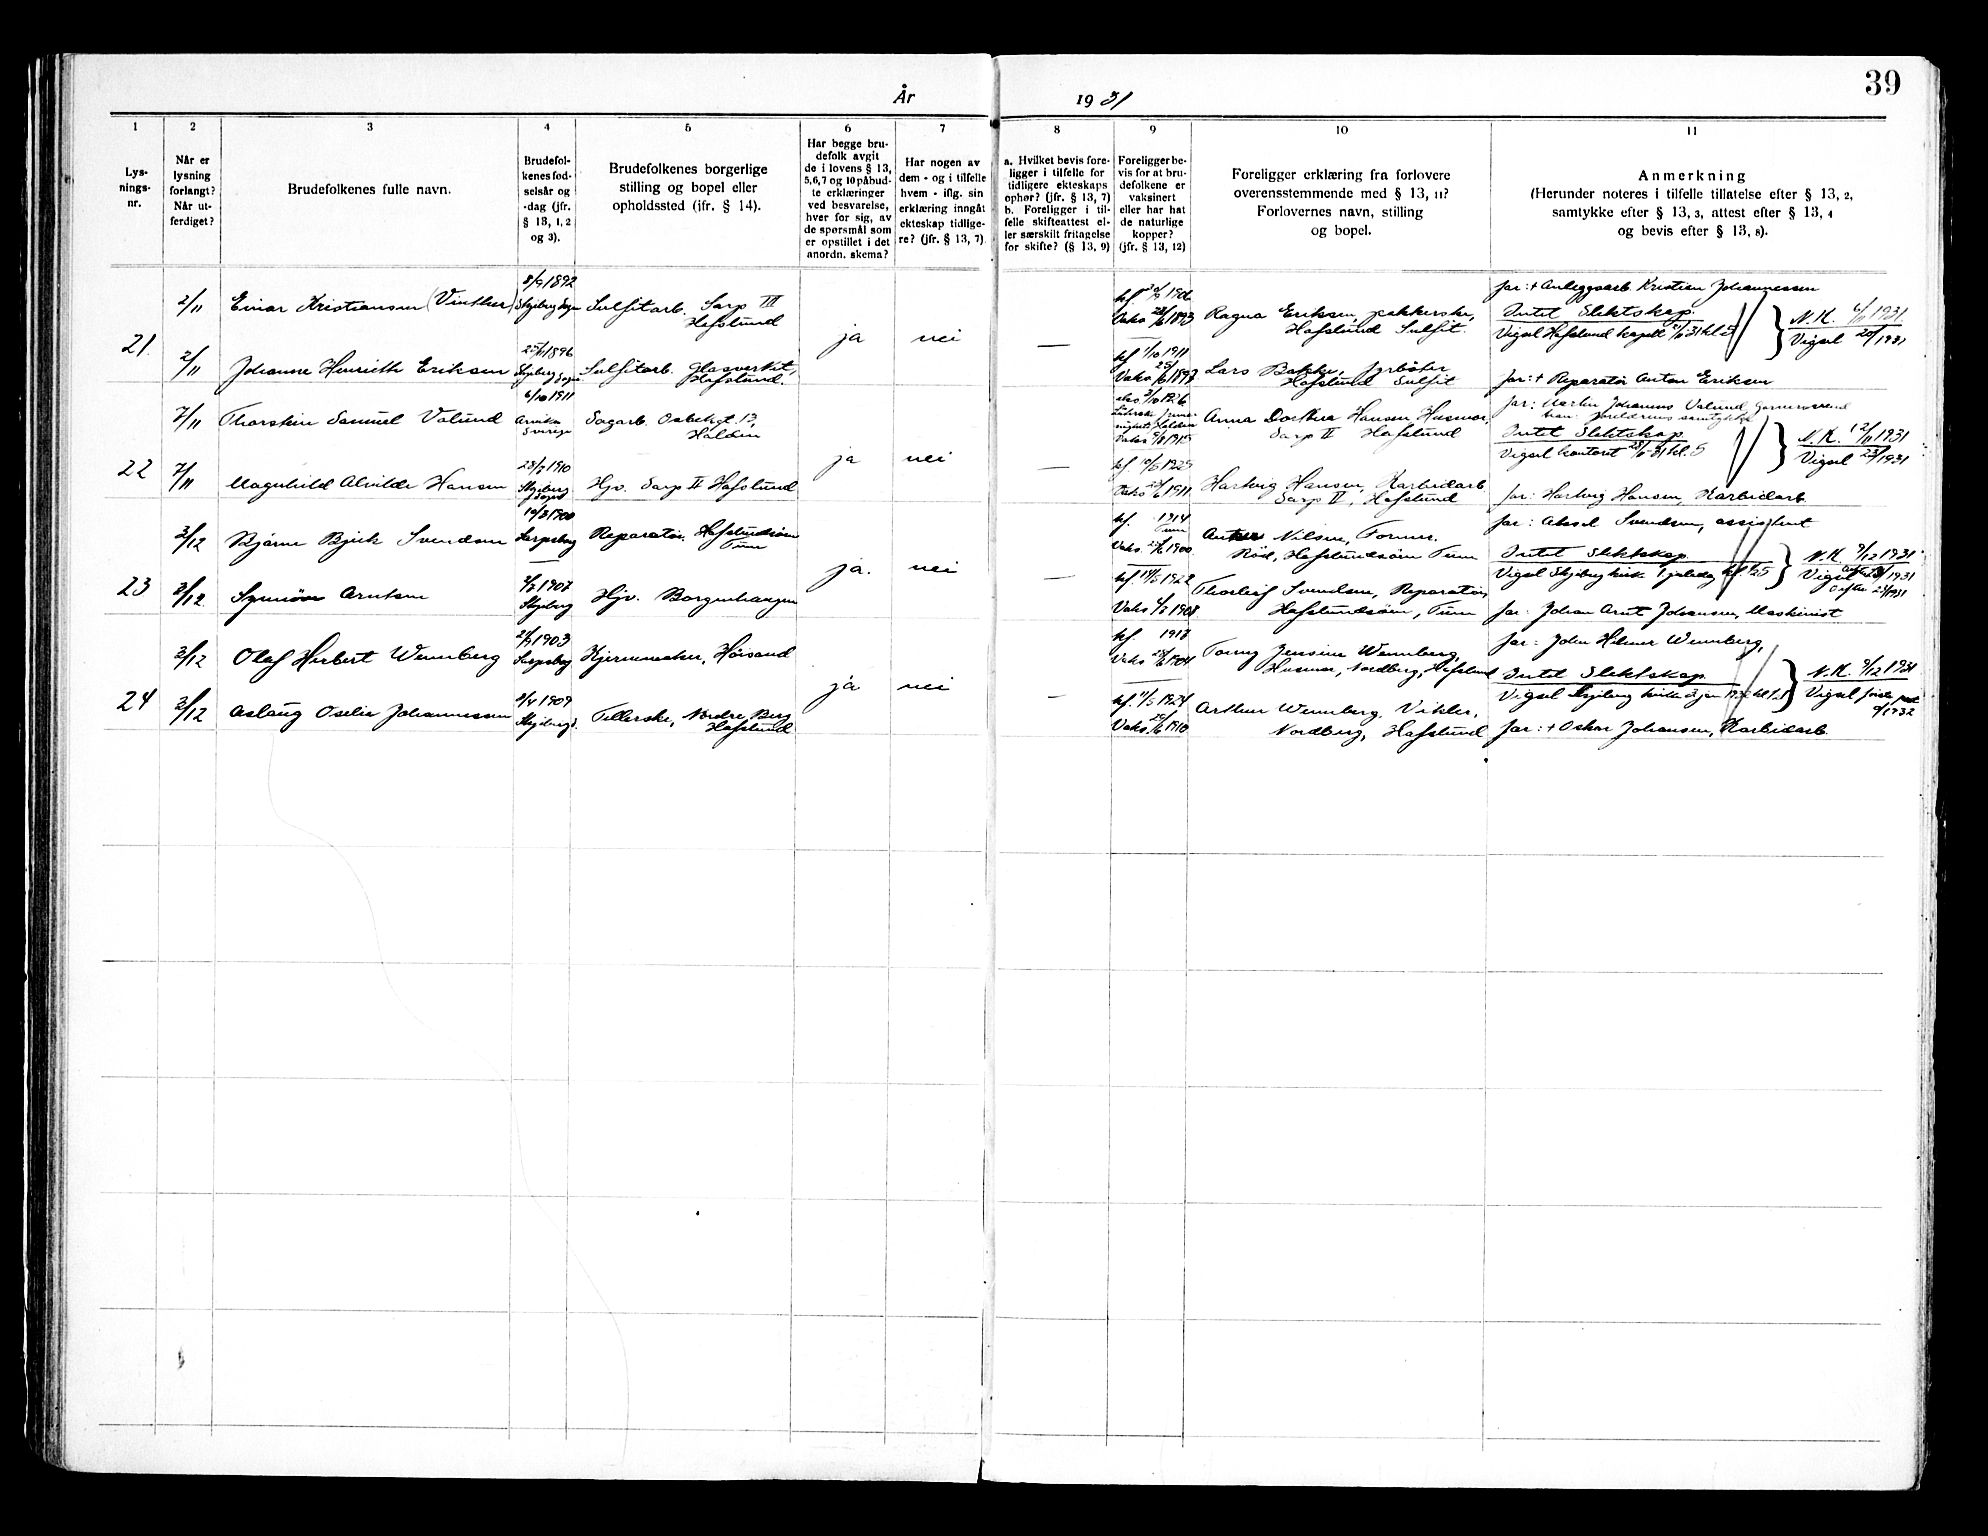 39
År 1931
1
2
3
4
5
6
7
8
9
10
11
Lys-
nings-
nr.
Når er
lysning
forlangt?
Når ut-
ferdiget?
Brudefolkenes fulle navn.
Brudefol-
kenes fød-
selsår og
-dag (jfr.
§ 13, 1, 2
og 3).
Brudefolkenes borgerlige
stilling og bopel eller
opholdssted (ifr. § 14).
Har begge bru-
defolk avgit
de i lovens § 13,
5,6,7 og 10 påbud-
te erklæringer
ved besvarelse,
hver for sig, av
de spørsmål som
er opstillet i det
anordn. skema?
Har nogen av
dem - og i tilfelle
hvem - iflg. sin
erklæring inngåt
ekteskap tidlige-
re? (jfr. § 13, 7).
a. Hvilket bevis fore-
ligger i tilfelle for
tidligere ekteskaps
ophør? (jfr. § 13, 7)
b. Foreligger i til-
felle skifteattest el-
ler særskilt fritagelse
for skifte? (§ 13, 9)
Foreligger be-
vis for at bru-
defolkene er
vaksinert
eller har hat
de naturlige
kopper?
(jfr. § 13, 12)
Foreligger erklæring fra forlovere
overensstemmende med § 13, 11?
Forlovernes navn, stilling
og bopel.
Anmerkning
(Herunder noteres i tilfelle tillatelse efter § 13, 2,
samtykke efter § 13, 3, attest efter § 13, 4
og bevis efter § 13, 8).
21.
2/11
Einar Kristiansen (Vinther)
8/9 1892
Sulfitarb. Sarp III
Hafslund
ja
nei
—
Ragna Eriksen, pakkerske,
Hafslund Sulfit.
far: + Anleggsarb. Kristian Johannessen
Intet Slektskap.
Vigsel Hafslund kapell
N.K. 6/11 1931
Vigsel 20/11 1931
2/11
Johanne Henriette Eriksen
25/11 1896
Sulfitarb. Glasverket,
Hafslund.
kf. 1/10 1911
Lars Bakke, fyrbøter
Hafslund Sulfit
far: + Reparatør Anton Eriksen
22
7/11
Thorstein Samuel Valund
6/10 1911
Arvika
Sverige
Sagarb. Osbekgt. 13,
Halden
ja
nei
—
Anna Dorthea Hansen Husmor,
Sarp II Hafslund
Intet Slektskap
Vigsel kontoret kl. 5
N.K. 12/11 1931
Vigsel 23/11 1931
7/11
Magnhild Alvilde Hansen
23/7 1910
Hjv. Sarp II Hafslund
Hartvig Hansen, Karbidarb.
Sarp II, Hafslund
far: Hartvig Hansen, Karbidarb.
23
2/12
Bjarne Bjick Svendsen
10/3 1900
Sarpsborg
Reparatør. Hafslundsøen
Tune
ja.
nei
—
kf. 1914
Tune
Nilsen, Former.
Rød, Hafslundsøen Tune
far: Aksel Svendsen, assistent
Intet Slektskap.
Vigsel Skjeberg kirke 1 juledag
N.K. 9/12 1931
2/12.
Synnöve Arntsen
1907
Skjeberg
Hjv. Borgenhaugen
kf. 14/5 1922
Vaks. 1908
Thorleif Svendsen, Reparatør
Hafslundsøen, Tune
far: Johan Arnt Johansen, Maskinist
24
2/12
Olaf Herbert Wennberg
1903
Sarpsborg
Kjernemaker, Höisand
ja
nei
—
kf. 1917
Jensine Wennberg,
Husmor, Nordberg, Hafslund
far: John Hilmer Wennberg,
Intet Slektskap.
Vigsel Skjeberg kirke
N.K. 9/12 1931
2/12
Aslaug Oselie Johannessen
1909
Skjeberg
Tellerske, Nordre Berg
Hafslund
kf. 11/5 1924
Vaks. 1910
Arthur Wennberg. Vikler,
Nordberg, Hafslund
far: + Oskar Johansen, Karbidarb.